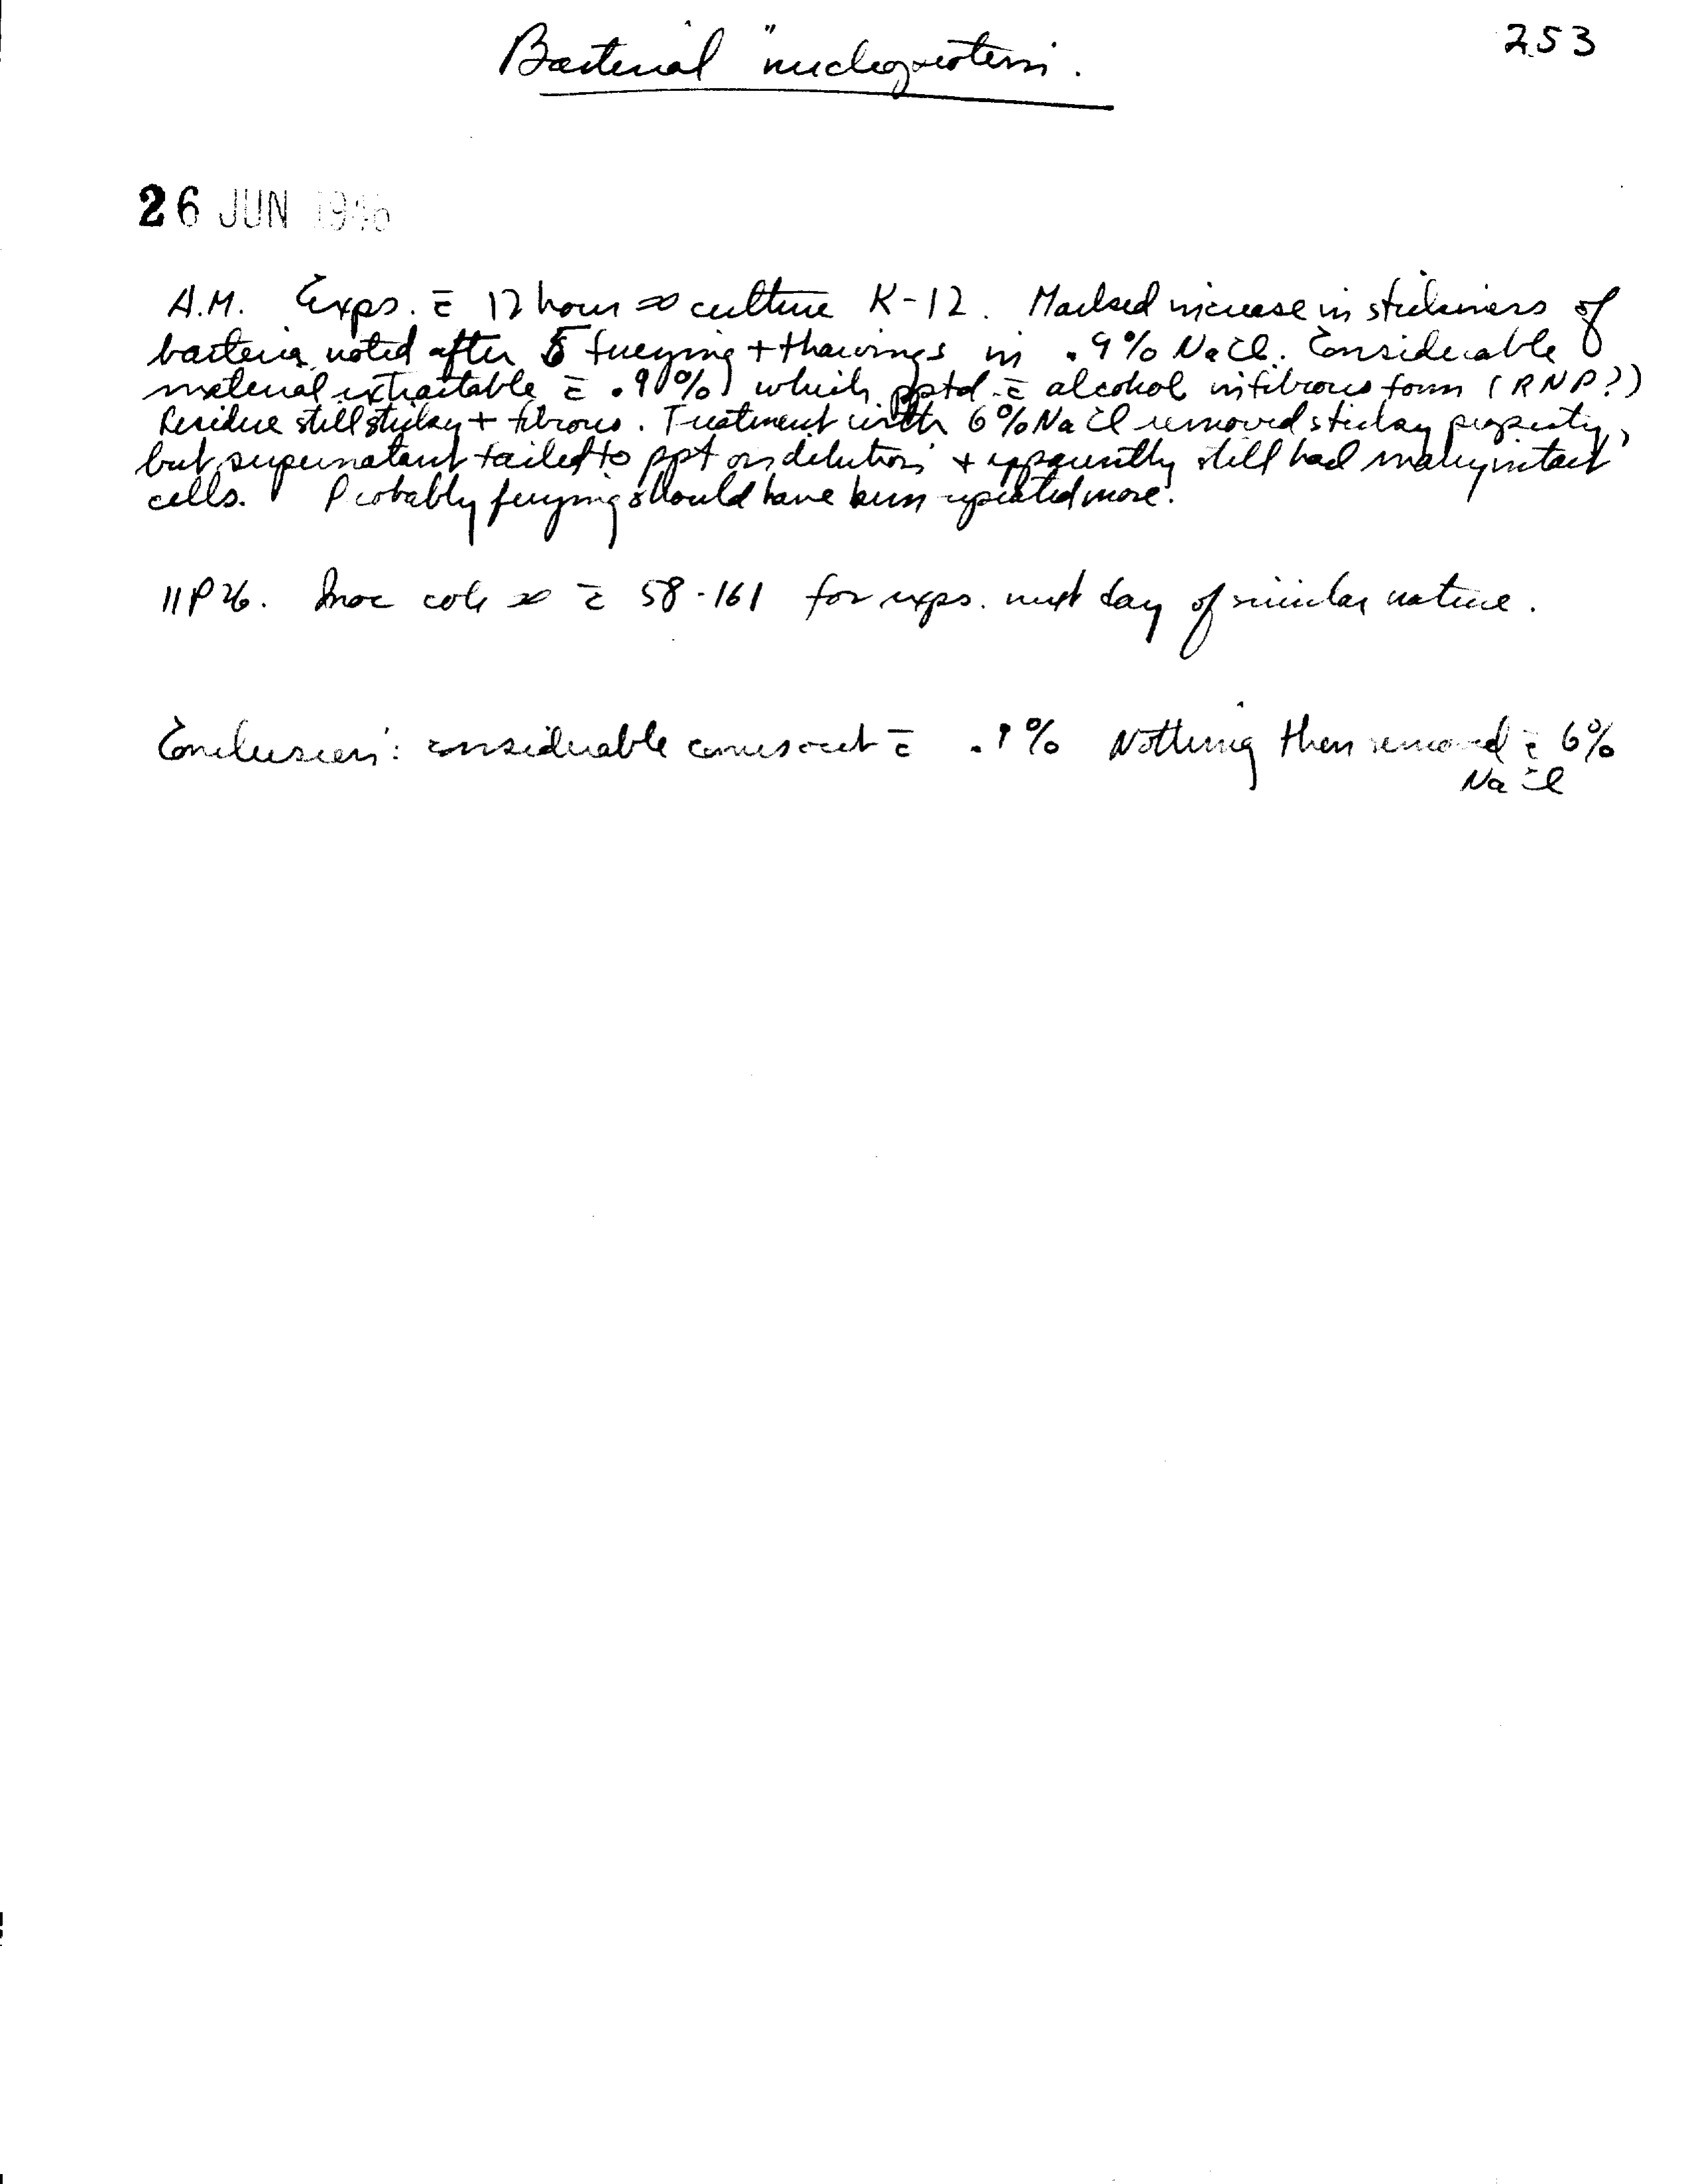 253
Bacterial "nucleoprotein.
26 JUN 1946
A.M. Exps. c̄ 17 hour ∞ culture K-12. Marked increase in stickiness of
bacteria noted after 5 freezing + thawings in .9% NaCl. Considerable
material extractable c̄ .9% which pptd c̄ alcohol in fibrous form (RNP?)
Residue still sticky + fibrous. Treatment with 6% NaCl removed sticky property,
but supernatant failed to ppt on dilution + apparently still had many intact
cells. Probably freezing should have been repeated more.
11P26. Inoc ∞ c̄ 58-161 for exps. next day of similar nature.
Conclusion: considerable comes out c̄ .9% Nothing then removed c̄ 6%
NaCl